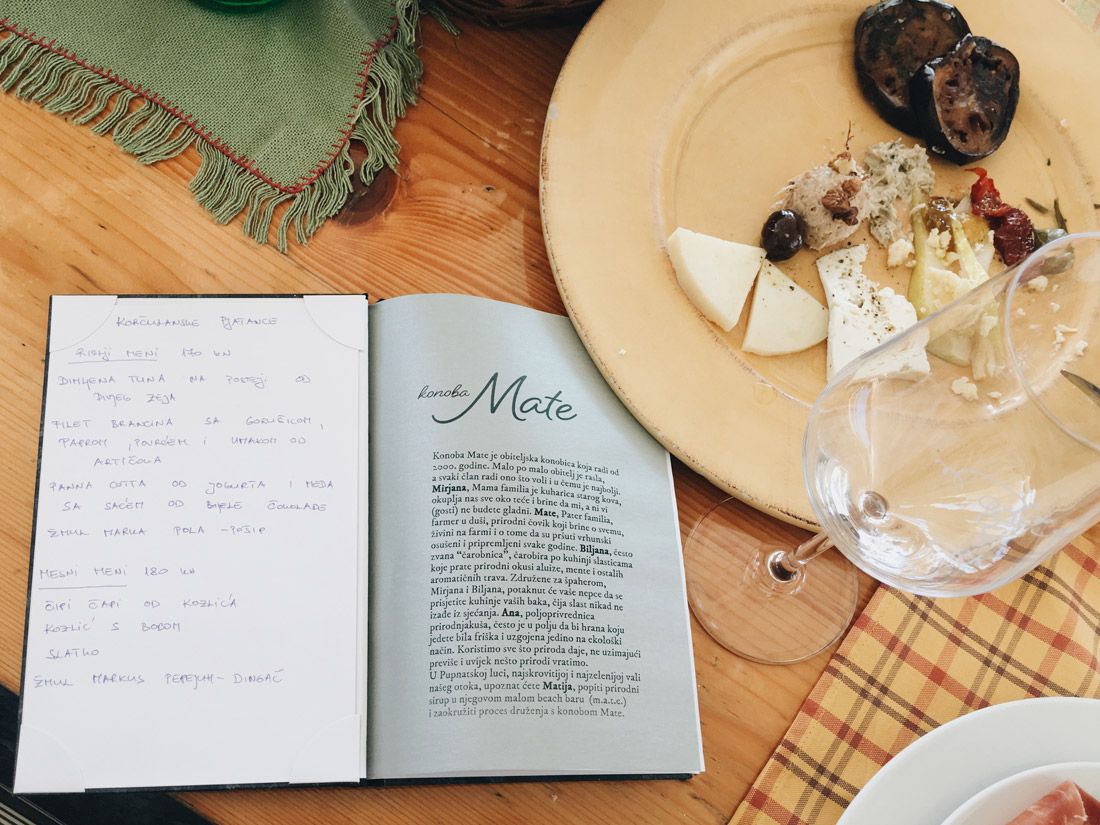 KORČULANSKE PJATANCE
RIBLJI MENI 170 KN
DIMLJENA TUNA NA POSTEJI OD
DIVJEG ZEJA
FILET BRANCINA SA GORUŠICOM,
PAPROM, POVRĆEM I UMAKOM OD
ARTIČOLA
PANNA COTTA OD JOGURTA I MEDA
SA SAĆEM OD BIJELE ČOKOLADE
ŽMUL MARKA POLA - POŠIP
MESNI MENI 180 KN
ČIPI ČAPI OD KOZLIĆA
KOZLIĆ S BOBOM
SLATKO
ŽMUL MARKUS PEPEJUH - DINGAČ
konoba Mate
Konoba Mate je obiteljska konobica koja radi od
2000. godine. Malo po malo obitelj je rasla,
a svaki član radi ono što voli i u čemu je najbolji.
Mirjana, Mama familia je kuharica starog kova,
okuplja nas sve oko teće i brine da mi, a ni vi
(gosti) ne budete gladni. Mate, Pater familia,
farmer u duši, prirodni čovik koji brine o svemu,
živini na farmi i o tome da su pršuti vrhunski
osušeni i pripremljeni svake godine. Biljana, često
zvana “čarobnica”, čarobira po kuhinji slasticama
koje prate prirodni okusi aluize, mente i ostalih
aromatičnih trava. Združene za špaherom,
Mirjana i Biljana, potaknut će vaše nepce da se
prisjetite kuhinje vaših baka, čija slast nikad ne
izađe iz sjećanja. Ana, poljoprivrednica
prirodnjakuša, često je u polju da bi hrana koju
jedete bila friška i uzgojena jedino na ekološki
način. Koristimo sve što priroda daje, ne uzimajući
previše i uvijek nešto prirodi vratimo.
U Pupnatskoj luci, najskrovitijoj i najzelenijoj vali
našeg otoka, upoznat ćete Matija, popiti prirodni
sirup u njegovom malom beach baru (m.a.t.e.)
i zaokružiti proces druženja s konobom Mate.